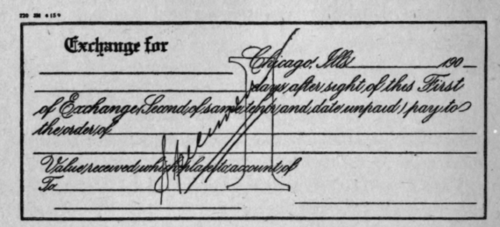 Exchange for
Chicago, Ills. 190
days after sight of this First
of Exchange, Second of same tenor and date unpaid, pay to
the order of
Value received, which place to account of
To
Specimen
1